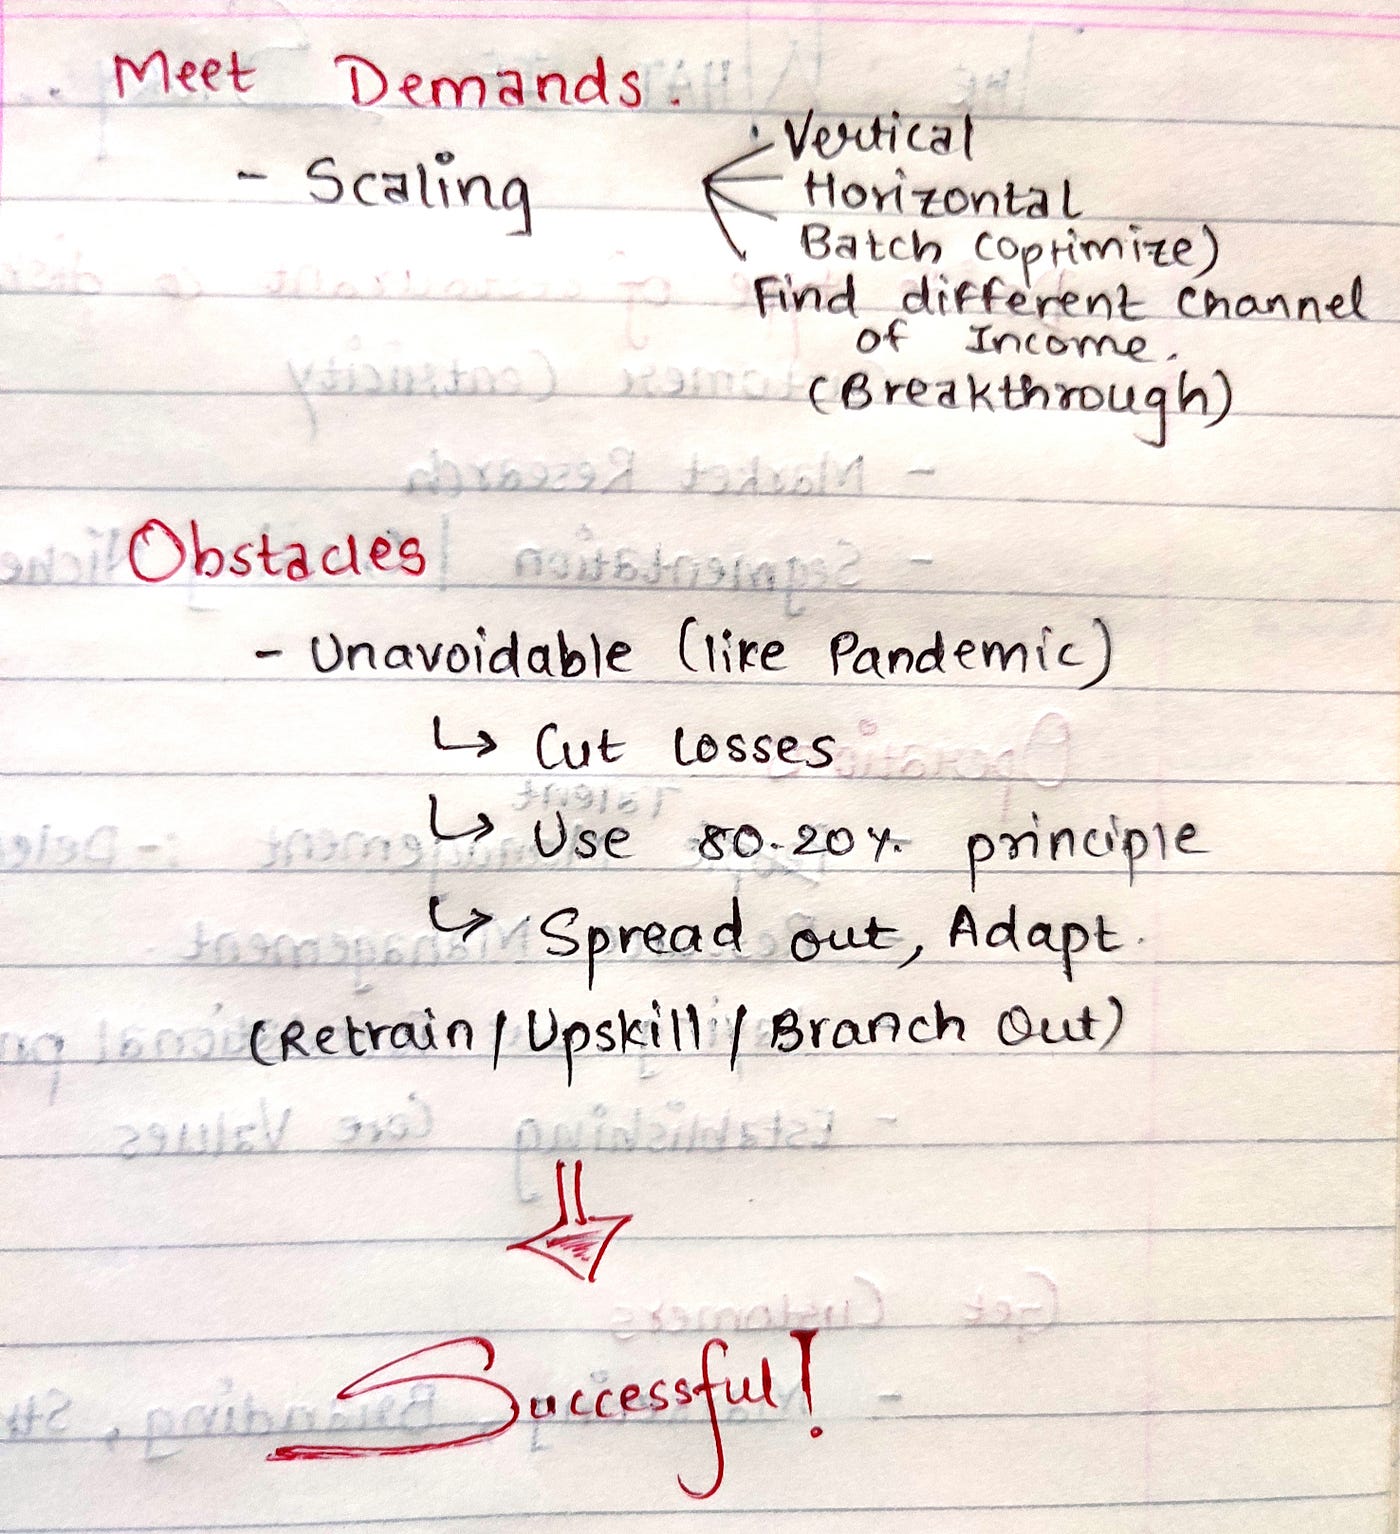 Meet Demands.
- Scaling
Vertical
Horizontal
Batch (optimize)
Find different channel
of Income.
(Breakthrough)
Obstacles
- Unavoidable (like Pandemic)
↳ Cut losses
↳ Use 80-20% principle
↳ Spread out, Adapt.
(Retrain / Upskill / Branch Out)
Successful!